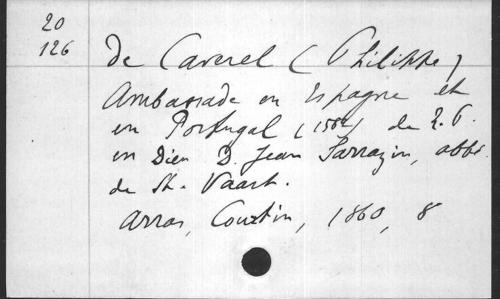 20
126
de Caverel (Philippe)
Ambassade en Espagne et
en Portugal (1582) de R. P.
en Dieu D. Jean Sarrazin, abbé
de St. Vaast.
Arras, Courtin, 1860, 8